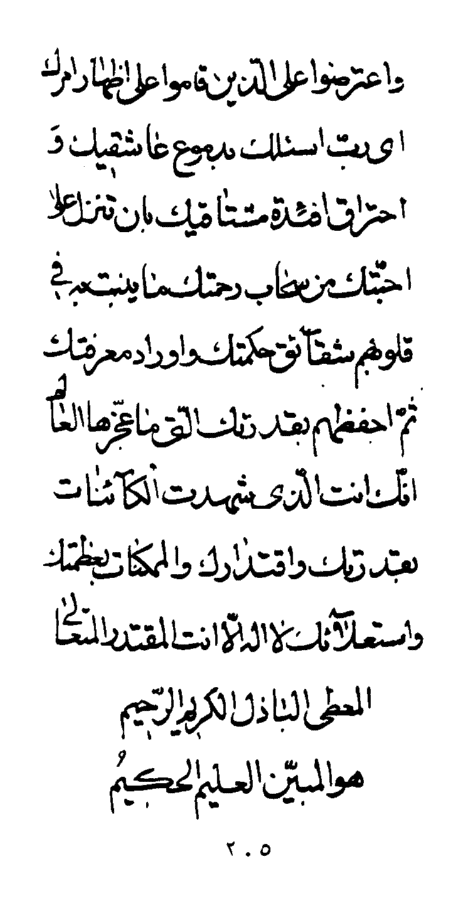 واعترضوا على الّذين قاموا على اظهار امرك
اى ربّ اسئلك بدموع عاشقيك وَ
احتراق افئدة مشتاقيك بان تنزل على
احبّتك من سحاب رحمتك ما ينبت به فى
قلوبهم شقآئق حكمتك و اوراد معرفتك
ثمّ احفظهم بقدرتك الّتى ما عجّزها العالم
انّك انت الّذى شهدت الكآئنات
بقدرتك واقتدارك والممكنات بعظمتك
واستعلآئك لا اله الّا انت المقتدر المتعالى
المعطى الباذل الكريم الرّحيم
هو المبيّن العليم الحكيمُ
٢٠٥